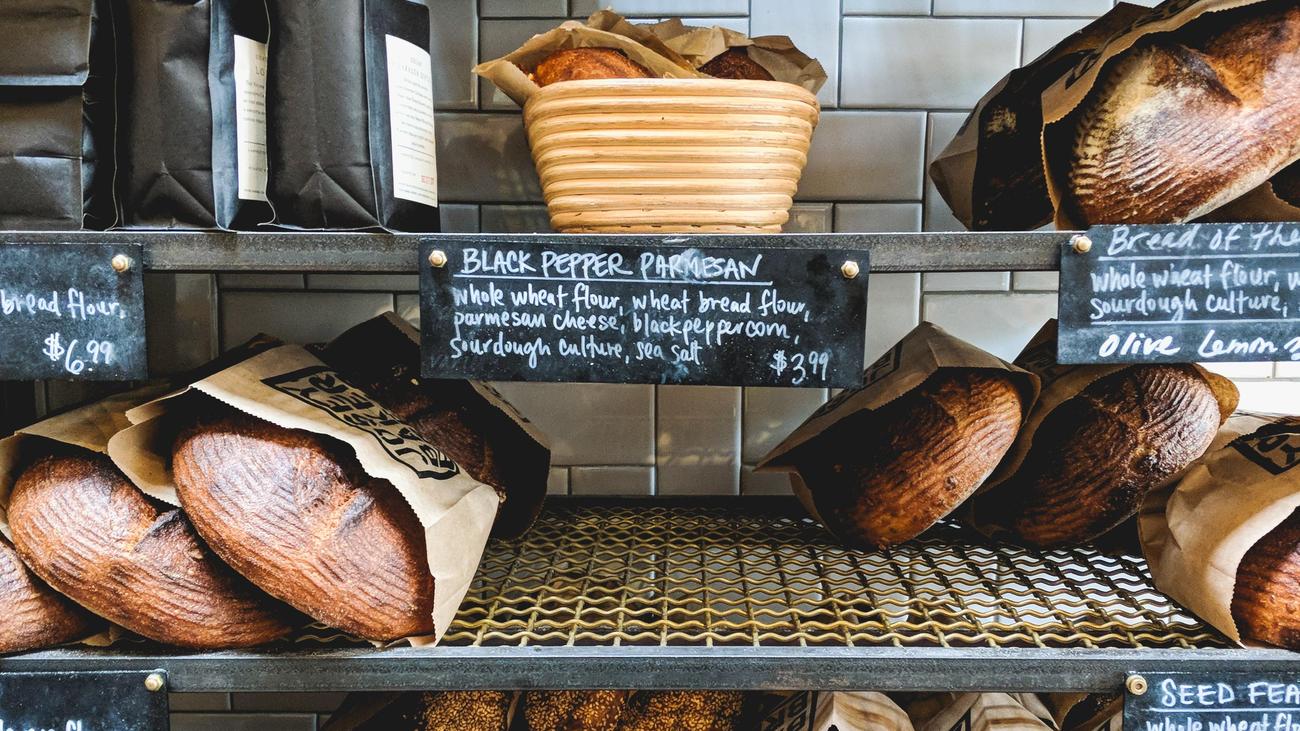 bread flour,
$6.99
BLACK PEPPER PARMESAN
whole wheat flour, wheat bread flour,
parmesan cheese, black peppercorn,
sourdough culture, sea salt
$3.99
Bread of the
whole wheat flour, w
sourdough culture,
Olive Lemon
SEED FEA
whole wheat flo